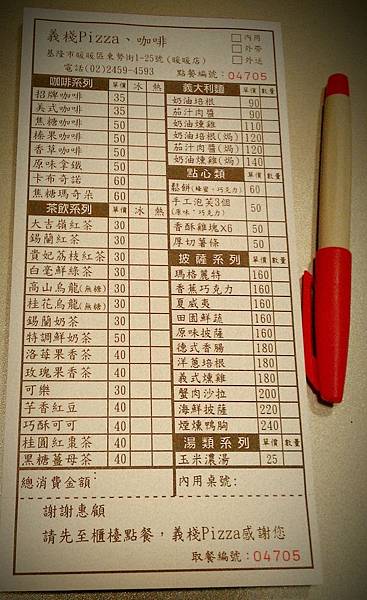 義棧Pizza、咖啡
□內用
基隆市暖暖區東勢街1-25號(暖暖店)
□外帶
電話(02)2459-4593
□外送
點餐編號：04705
咖啡系列 單價 冰 熱
招牌咖啡 35
美式咖啡 35
焦糖咖啡 50
榛果咖啡 50
香草咖啡 50
原味拿鐵 50
卡布奇諾 60
焦糖瑪奇朵 60
茶飲系列 單價 冰 熱
大吉嶺紅茶 30
錫蘭紅茶 30
貴妃荔枝紅茶 30
白毫鮮綠茶 30
高山烏龍(無糖) 30
桂花烏龍(無糖) 30
錫蘭奶茶 30
特調鮮奶茶 50
洛莓果香茶 40
玫瑰果香茶 40
可樂 30
芋香紅豆 40
巧酥可可 40
桂圓紅棗茶 40
黑糖薑母茶 40
義大利麵 單價 數量
奶油培根 90
茄汁肉醬 90
奶油燻雞 110
奶油培根(焗) 120
茄汁肉醬(焗) 120
奶油燻雞(焗) 140
點心類 單價 數量
鬆餅(蜂蜜、巧克力) 60
手工泡芙3個
(原味、巧克力) 50
香酥雞塊X6 50
厚切薯條 50
披薩系列 單價 數量
瑪格麗特 160
香蕉巧克力 160
夏威夷 160
田園鮮蔬 160
原味披薩 160
德式香腸 180
洋蔥培根 180
義式燻雞 180
蟹肉沙拉 200
海鮮披薩 220
煙燻鴨胸 240
湯類系列 單價 數量
玉米濃湯 25
總消費金額：
內用桌號：
謝謝惠顧
請先至櫃檯點餐，義棧Pizza感謝您
取餐編號：04705